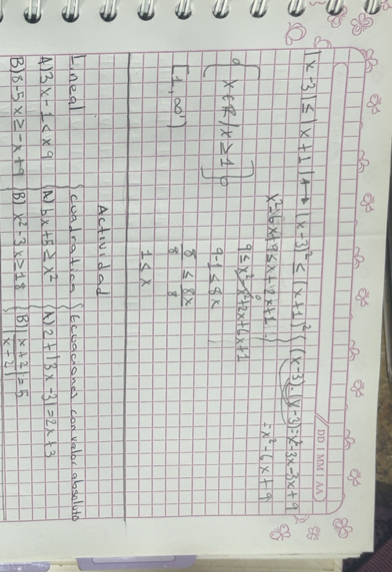 DD MM AA
|x-3| ≤ |x+1| ↔ (x-3)² ≤ (x+1)² { (x-3)·(x-3)=x²-3x-3x+9
= x²-6x+9
x²-6x+9 ≤ x²+2x+1
9 ≤ x²-x²+2x+6x+1
{x∈R/x≥1}
9-1 ≤ 8x
8/8 ≤ 8x/8
[1,∞)
1 ≤ x
Actividad
Lineal { cuadratica { Ecuaciones con valor absoluto
A) 3x-1<x9 { A) 5x+5≥x² { A) 2+|3x-3|=2x+3
B) 6-5x≥-x+9 { B) x²-3x≥18 { B) |x+2|/|x+2|=5